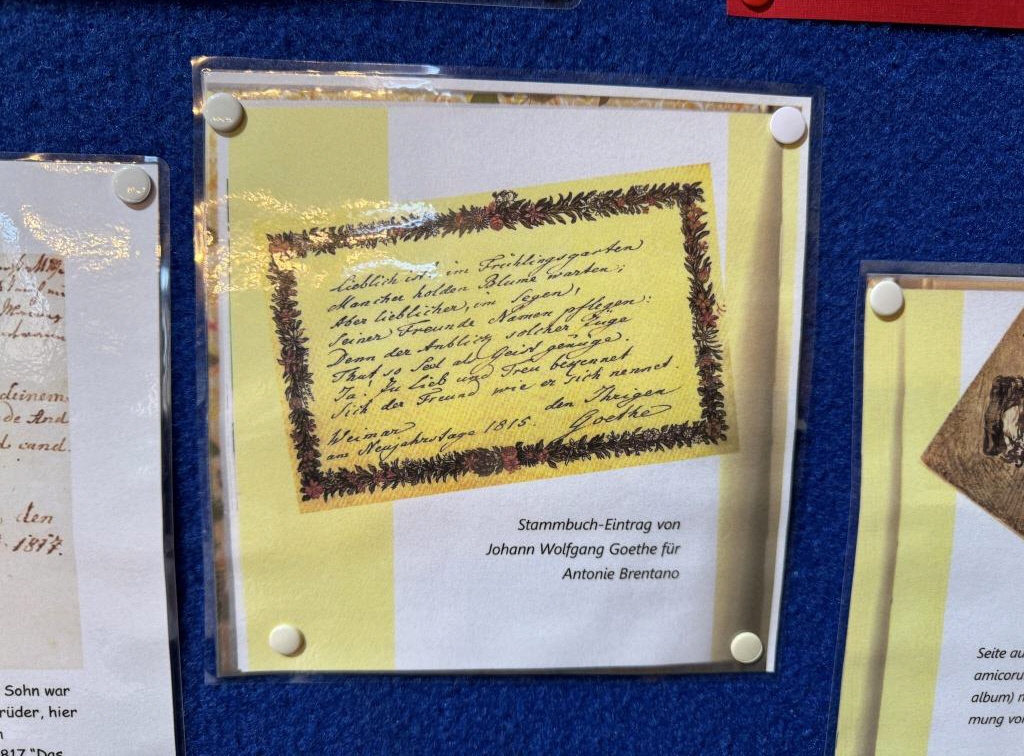 Lieblich ist's im Frühlingsgarten
Mancher holden Blume warten;
Aber lieblicher, im Segen,
Seiner Freunde Namen pflegen:
Denn der Anblick solcher Züge
Thut so Seel als Geist genüge.
Ja! Zu Lieb und Treu bekennet
Sich der Freund wie er sich nennet.
Weimar
am Neujahrstage 1815.
den Ihrigen
Goethe
Stammbuch-Eintrag von
Johann Wolfgang Goethe für
Antonie Brentano
deinem
de And
d cand.
den
1817.
Sohn war
rüder, hier
817 "Das
Seite au
amicoru
album) m
mung vo